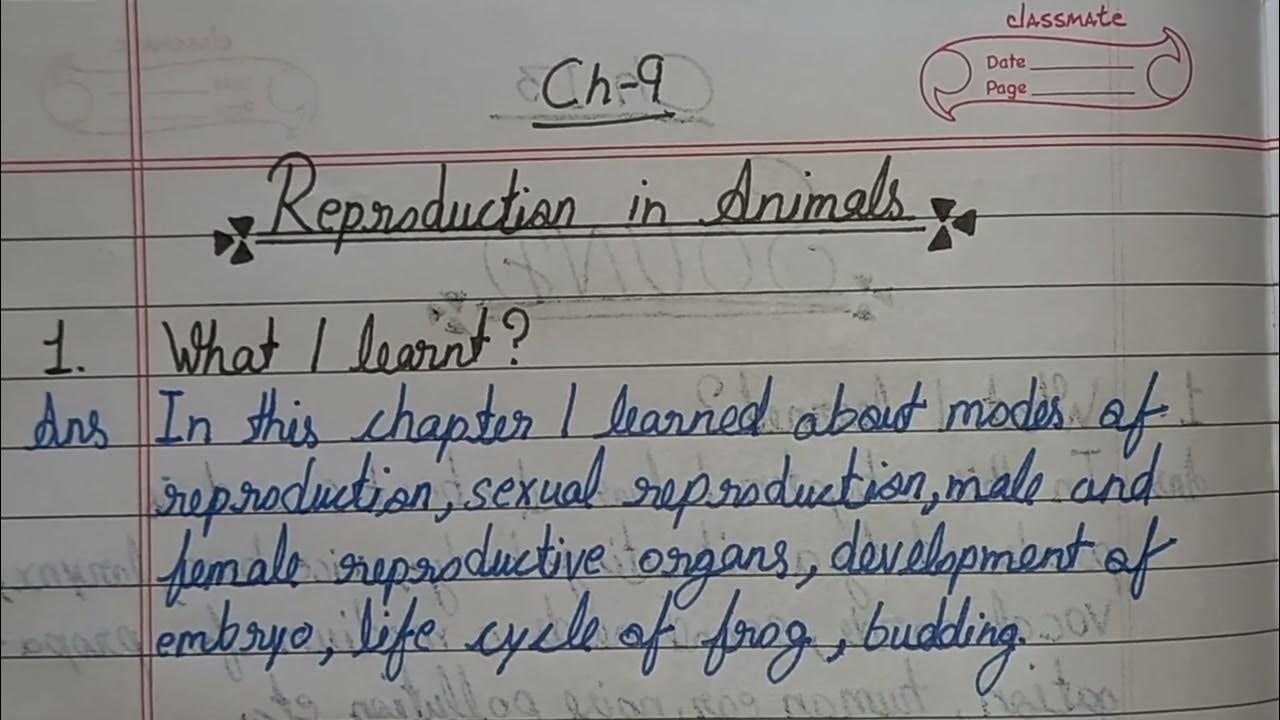 classmate
Date
Page
Ch-9
Reproduction in Animals
1. What I learnt?
Ans In this chapter I learned about modes of
reproduction, sexual reproduction, male and
female reproductive organs, development of
embryo, life cycle of frog, budding.